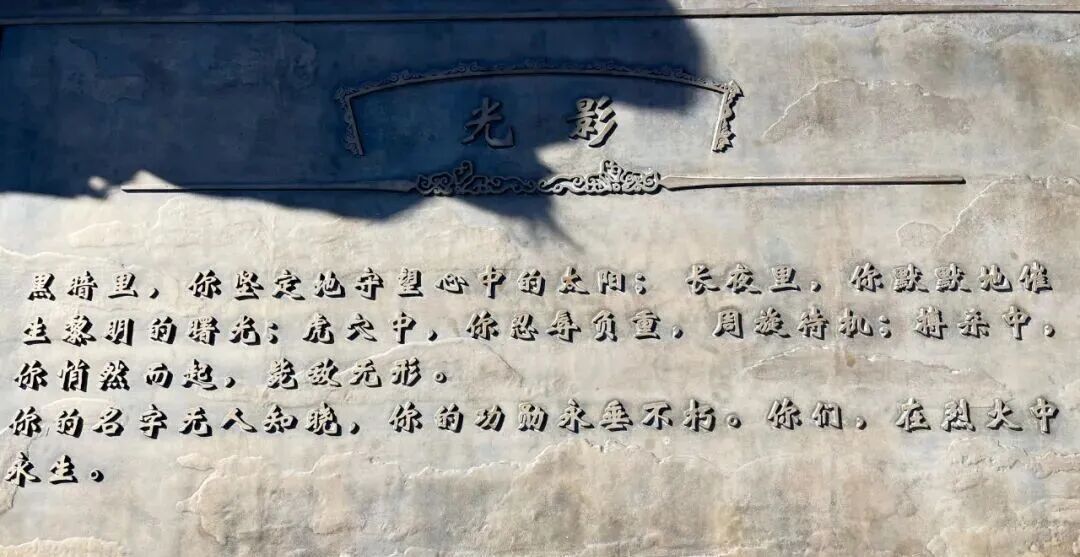 光影
黑暗里，你坚定地守望心中的太阳；长夜里，你默默地催
生黎明的曙光；虎穴中，你忍辱负重，周旋待机；搏杀中，
你悄然而起，毙敌无形。
你的名字无人知晓，你的功勋永垂不朽。你们，在烈火中
永生。